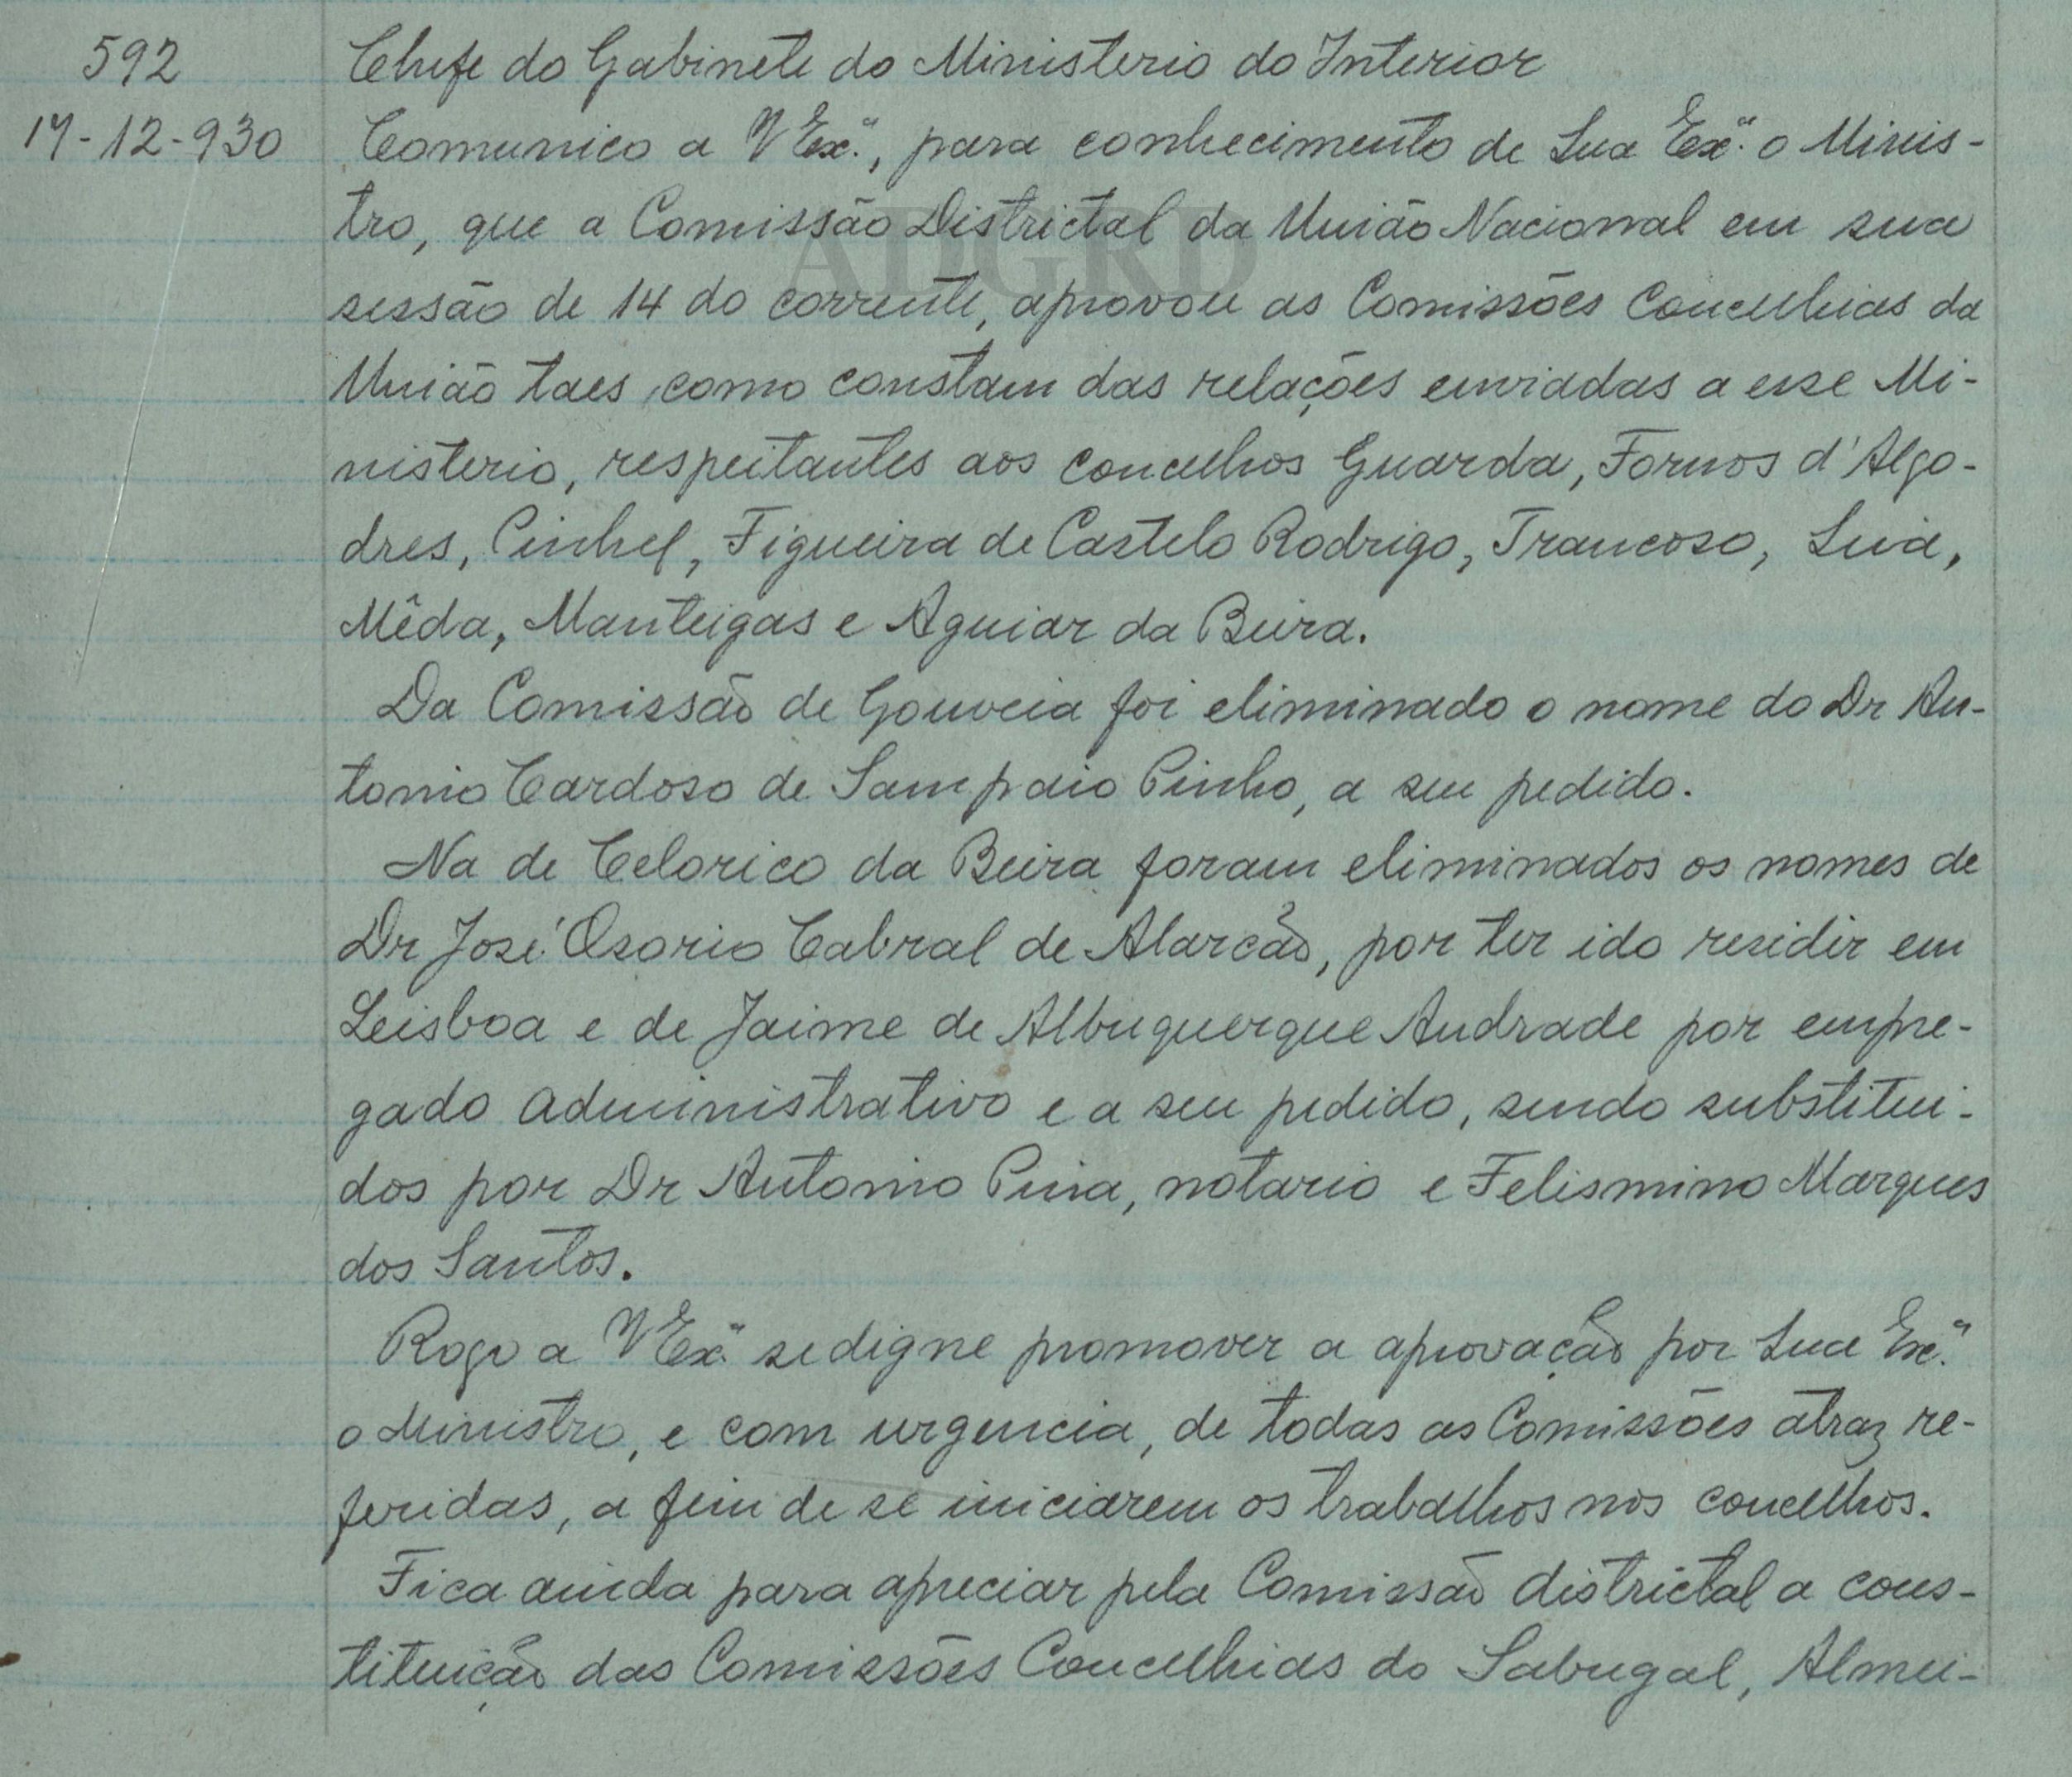 592
Chefe do Gabinete do Ministerio do Interior
17-12-930
Comunico a V Ex.ª, para conhecimento de Sua Ex.ª o Minis-
tro, que a Comissão Districtal da União Nacional em sua
sessão de 14 do corrente, aprovou as Comissões Concelhias da
União taes como constam das relações enviadas a esse Mi-
nisterio, respeitantes aos concelhos Guarda, Fornos d'Algo-
dres, Pinhel, Figueira de Castelo Rodrigo, Trancoso, Seia,
Mêda, Manteigas e Aguiar da Beira.
Da Comissão de Gouveia foi eliminado o nome do Dr An-
tonio Cardoso de Sampaio Pinho, a seu pedido.
Na de Celorico da Beira foram eliminados os nomes de
Dr José Osorio Cabral de Alarcão, por ter ido residir em
Leisboa e de Jaime de Albuquerque Andrade por empre-
gado administrativo e a seu pedido, sendo substitui-
dos por Dr Antonio Pina, notario e Felismino Marques
dos Santos.
Rogo a V Ex.ª se digne promover a aprovação por Sua Ex.ª
o Ministro, e com urgencia, de todas as Comissões atraz re-
feridas, a fim de se iniciarem os trabalhos nos concelhos.
Fica ainda para apreciar pela Comissão districtal a cons-
tituição das Comissões Concelhias do Sabugal, Almei-
ADGRD